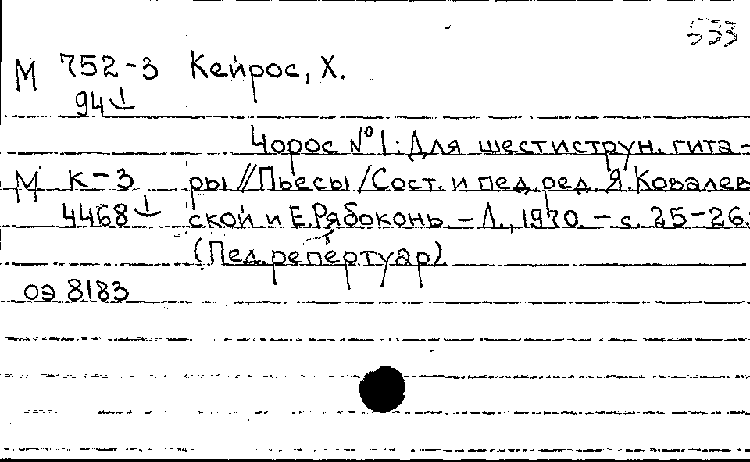 533
М 752-3 Кейрос, Х.
94↓
Чорос №1: Для шестиструн. гита-
М К-3 ры // Пьесы / Сост. и пед. ред. Я. Ковалев
4468↓ ской и Е. Рябоконь. – Л., 1970. – с. 25-26.
(Пед. репертуар)
оэ 8183